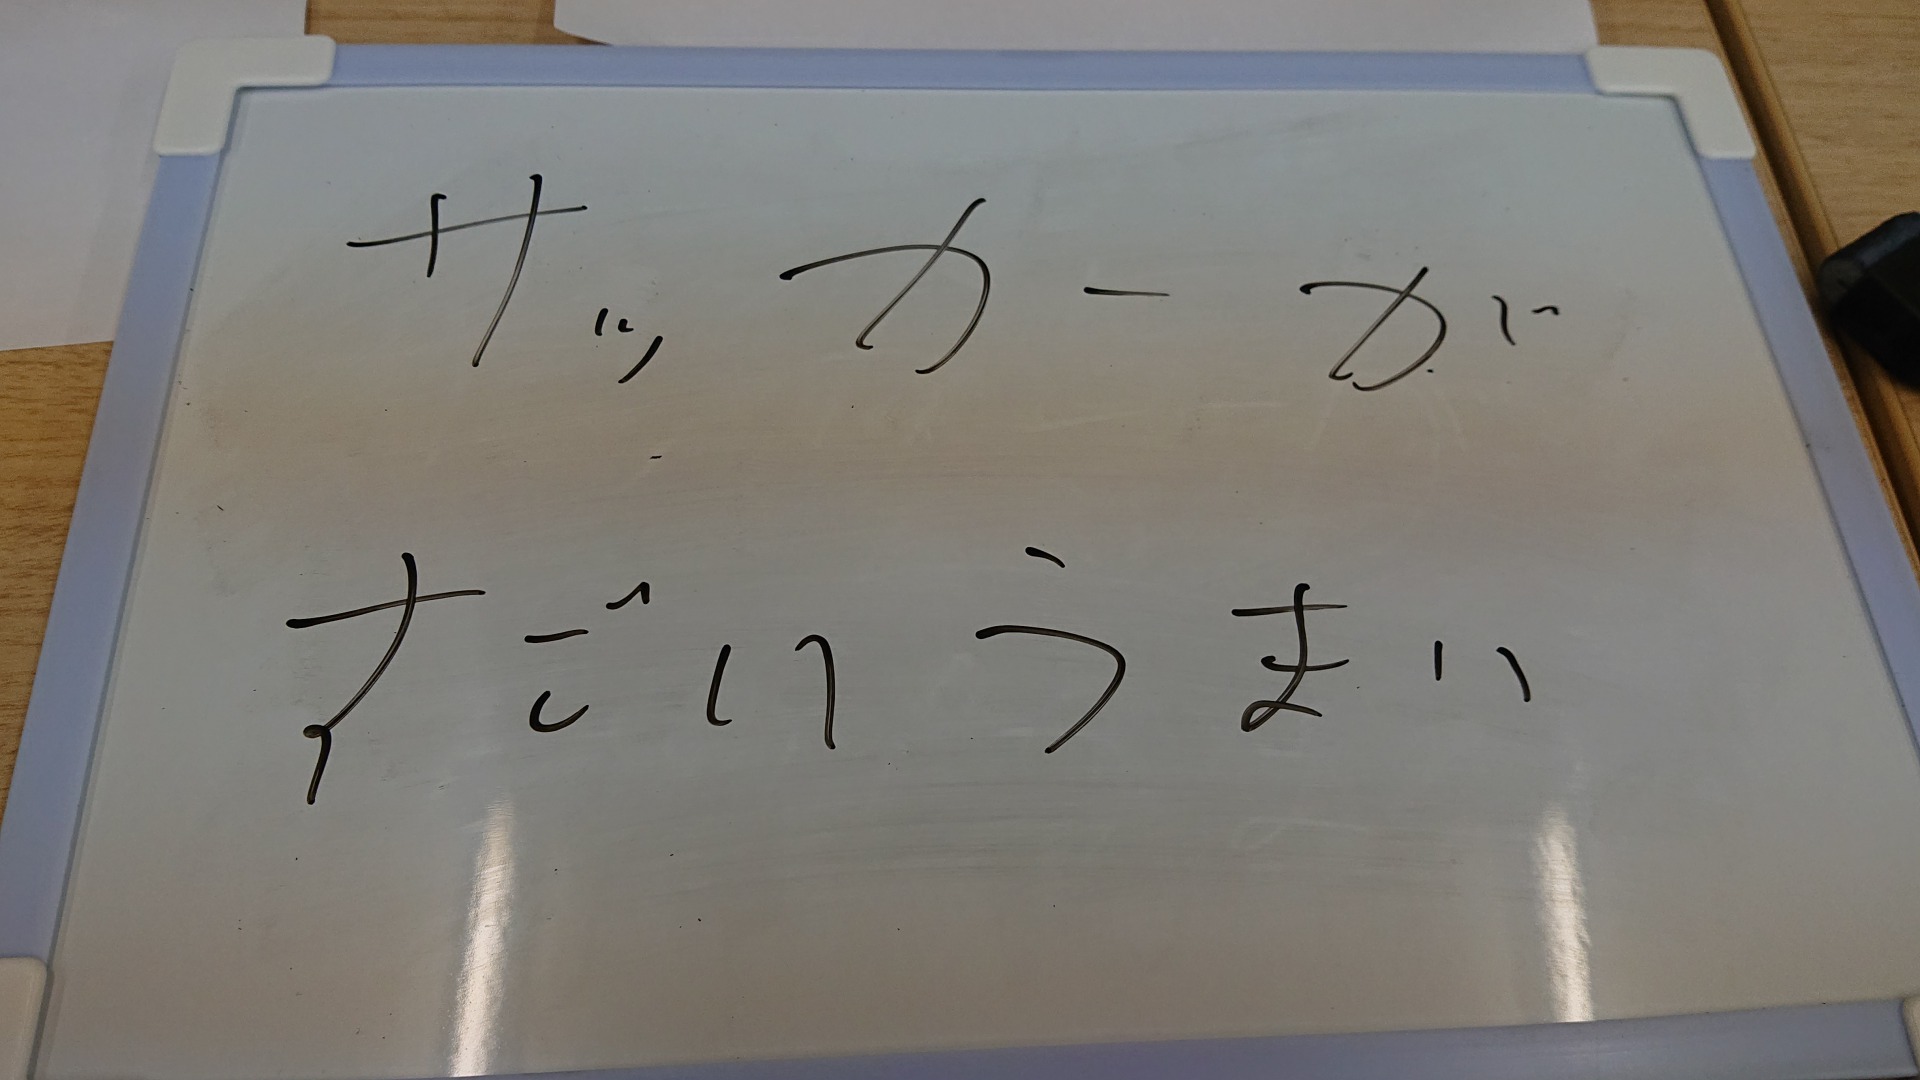 サッカーが
すごいうまい